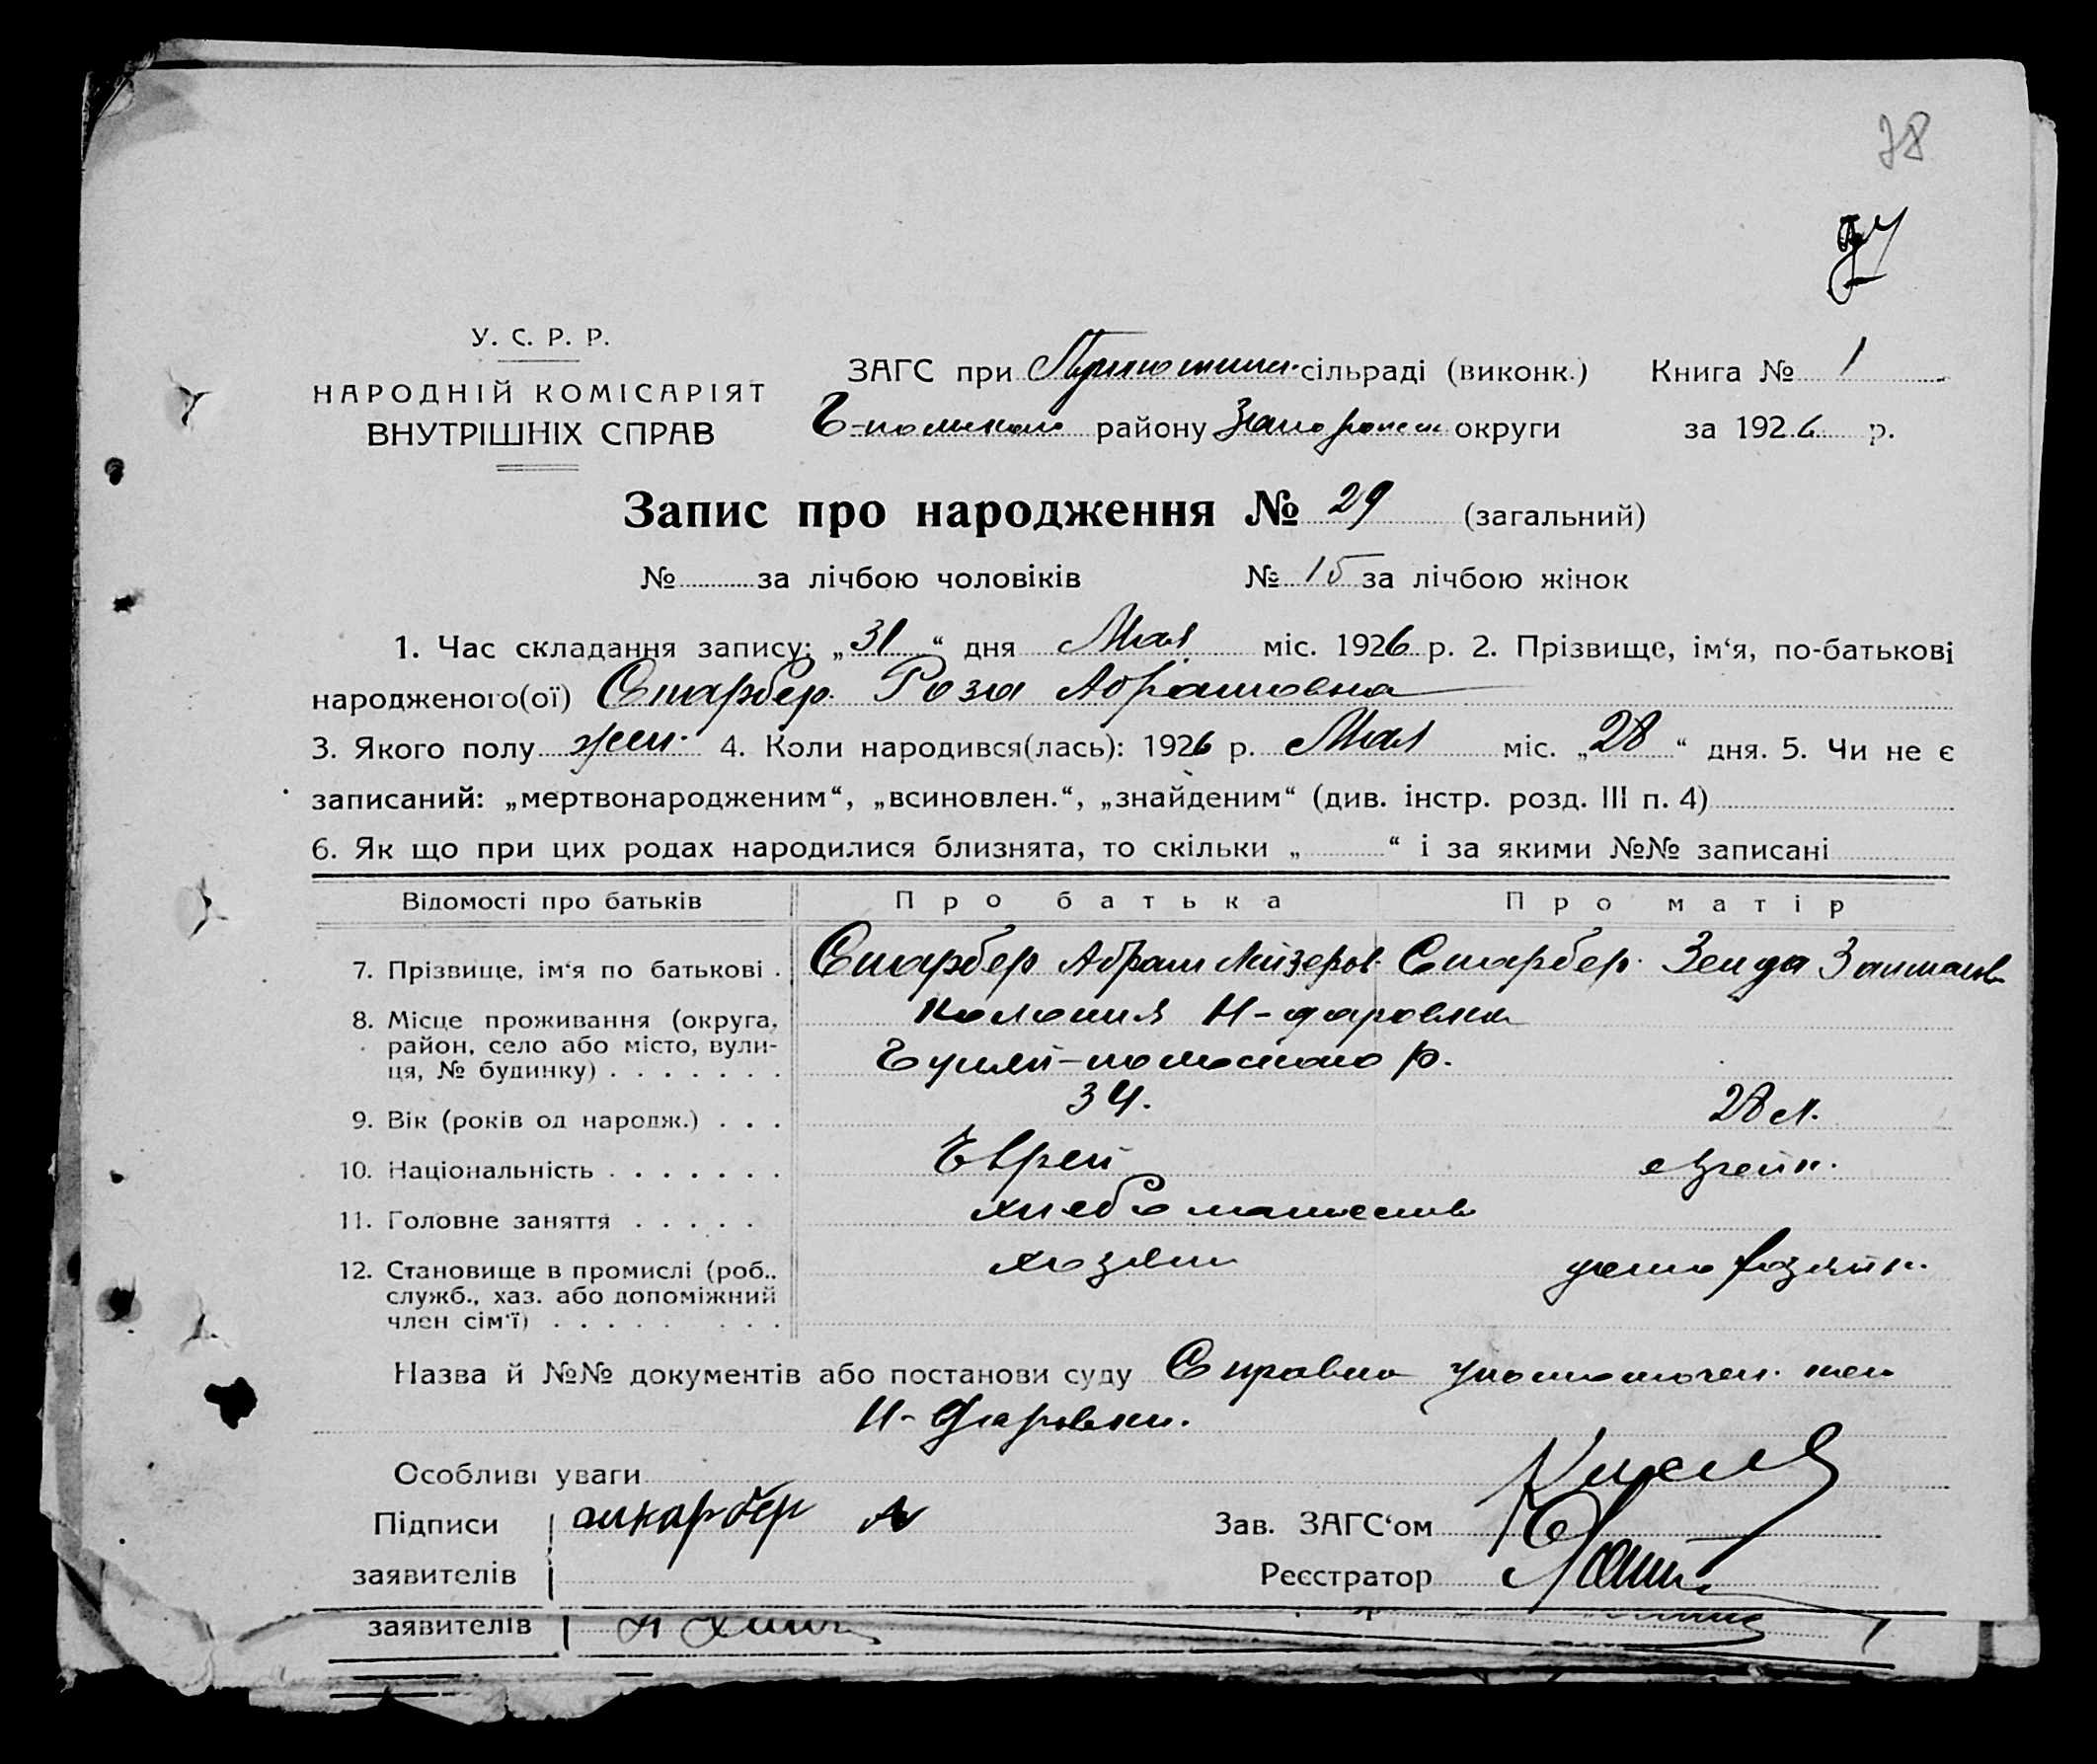 78
У. С. Р. Р.
НАРОДНІЙ КОМІСАРІЯТ
ВНУТРІШНІХ СПРАВ
ЗАГС при сільраді (виконк.) Книга № 1
Г-польского району Запорожск округи за 1926 р.
Запис про народження № 29 (загальний)
№ за лічбою чоловіків № 15 за лічбою жінок
1. Час складання запису: „31“ дня Мая міс. 1926 р. 2. Прізвище, ім‘я, по-батькові
народженого(ої) Старбер Роза Абрамовна
3. Якого полу жен. 4. Коли народився(лась): 1926 р. Мая міс. „28“ дня. 5. Чи не є
записаний: „мертвонародженим“, „всиновлен.“, „знайденим“ (див. інстр. розд. III п. 4)
6. Як що при цих родах народилися близнята, то скільки „ “ і за якими №№ записані
Відомості про батьків Про батька Про матір
7. Прізвище, ім‘я по батькові . Старбер Абрам Лейзеров. Старбер Зельда
8. Місце проживання (округа, Колония Н-даровка
район, село або місто, вули-
ця, № будинку) . . . . . . . Гуляй-польского р.
9. Вік (років од народж.) . . . 34. 28 л.
10. Національність . . . . . . . Еврей еврейк.
11. Головне заняття . . . . . хлебопашество
12. Становище в промислі (роб., хозяин домохозяйк.
служб., хаз. або допоміжний
член сім‘ї) . . . . . . . .
Назва й №№ документів або постанови суду Справка уполномочен. кол
Н-Даровки.
Особливі уваги
Підписи старбер А Зав. ЗАГС‘ом
заявителів Реєстратор
заявителів